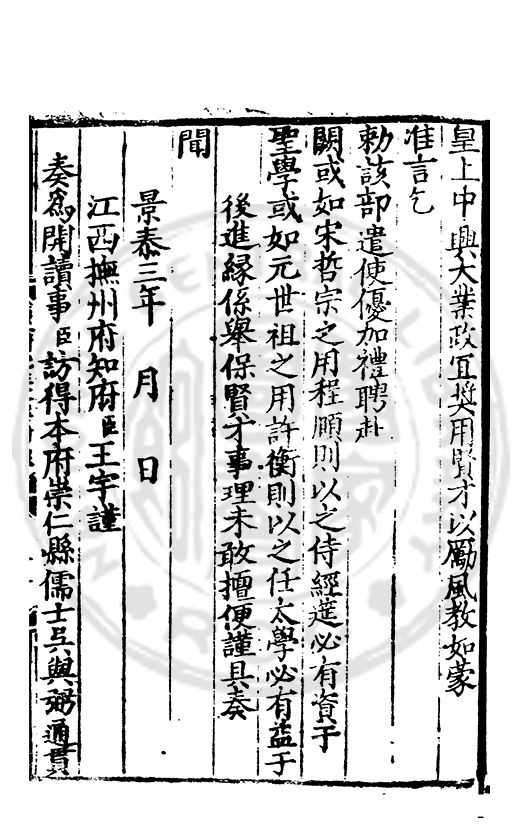 皇上中興大業政宜奬用賢才以勵風教如蒙
准言乞
勅該部遣使優加禮聘赴
闕或如宋哲宗之用程頤則以之侍經莚必有資于
聖學或如元世祖之用許衡則以之任太學必有益于
後進縁係舉保賢才事理未敢擅便謹具奏
聞
景泰三年　月　日
江西撫州府知府臣王宇謹
奏爲開讀事臣訪得本府崇仁縣儒士吳與弼通貫